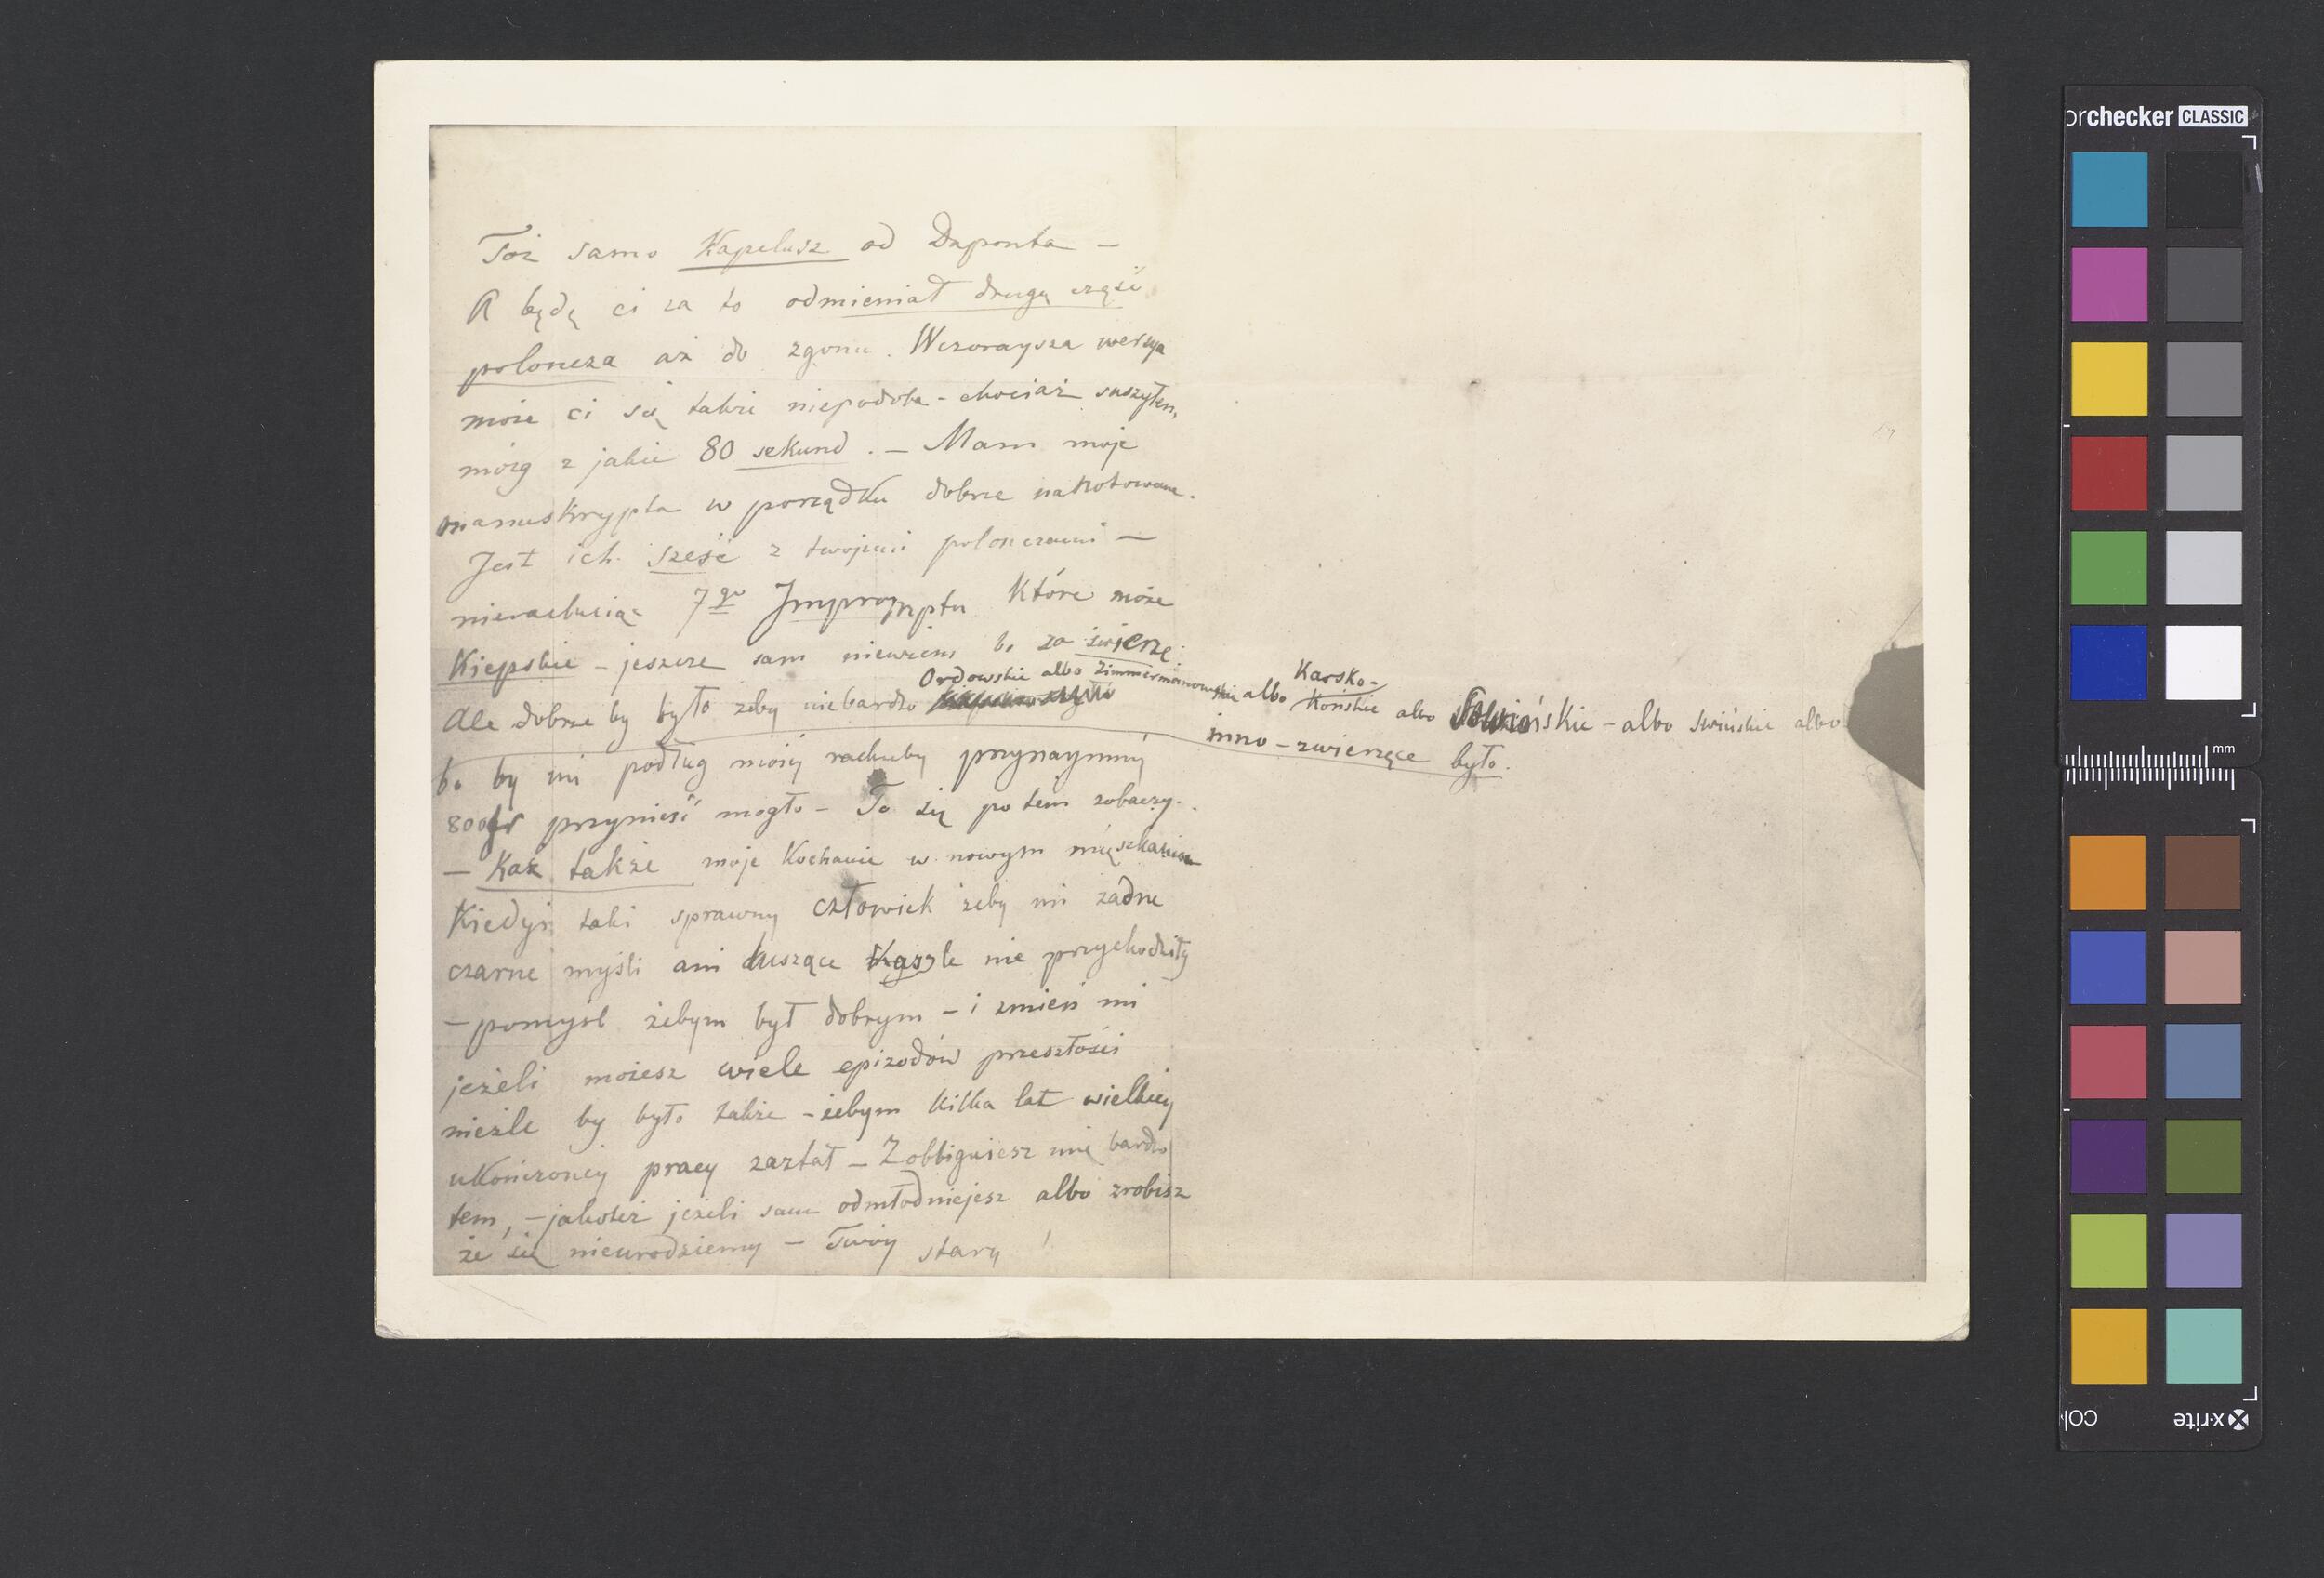 Toż samo Kapelusz od Duponta —
A będę ci za to odmieniał drugą część
poloneza aż do zgonu. Wczoraysza wersya
może ci się także niepodoba - chociaż suszyłem
mózg z jakie 80 sekund. — Mam moje
manuskrypta w porządku dobrze nanotowane.
Jest ich sześć z twojemi polonezami —
nierachując 7go Impromptu które może
Kiepskie - jeszcze sam niewiem bo za świeże.
Ordowskie albo Zimmermanowskie albo Karsko-Końskie albo Sowińskie - albo świńskie albo
Ale dobrze by było żeby niebardzo
inno-zwierzęce było.
bo by mi podług mojej rachuby przynaymniy
800 fr przynieść mogło - To się potem zobaczy.
— Każ także moje Kochanie w nowym mięszkaniu
Kiedyś taki sprawny człowiek żeby mi żadne
czarne myśli ani duszące Kaszle nie przychodziły
- pomyśl żebym był dobrym - i zmień mi
jeżeli możesz wiele epizodów przeszłości
nieźle by było także - żebym kilka lat wielkiey
ukończoney pracy zastał - Zobbligujesz mię bardzo
tem, - jakoteż jeżeli sam odmłodniejesz albo zrobisz
że się nieurodziemy - Twóy stary
orchecker CLASSIC
mm
x-rite